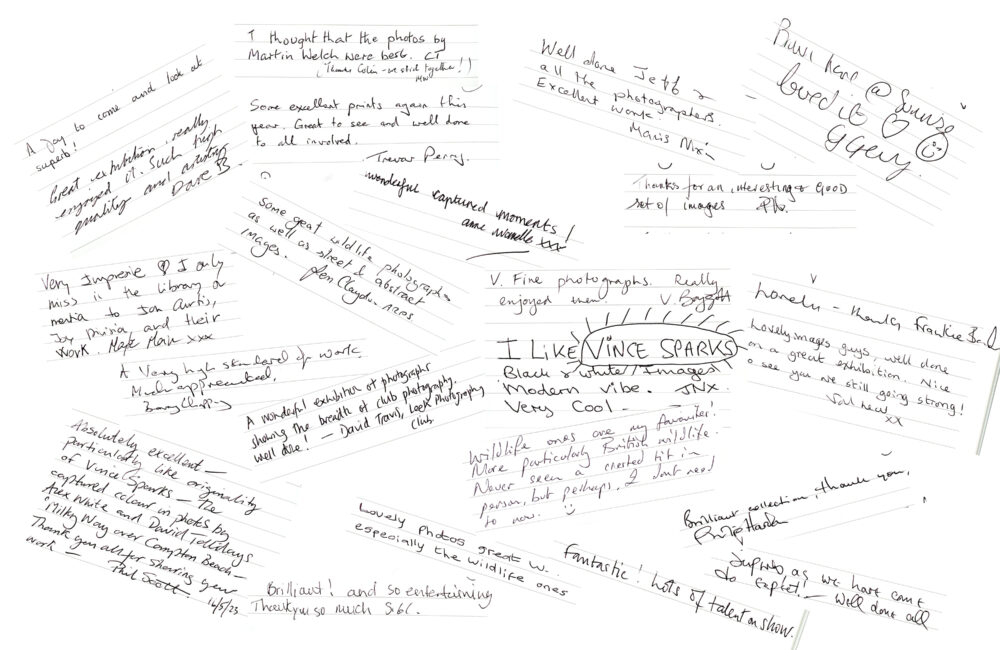 I thought that the photos by
Martin Welch were best. CT
(Thanks Colin - we stick together!)
MW
Some excellent prints again this
year. Great to see and well done
to all involved.
Trevor Perry.
A Joy to come and look at
superb!
Great exhibition, really
enjoyed it. Such high
quality and artistry
Dave B
Well done Jeff &
all the photographers.
Excellent work
Mavis
@
loved it ♡
wonderful captured moments!
anne xxx
Thanks for an interesting & GOOD
set of images
Some great wildlife photographs
as well as street & abstract
images.
Ken Claydon ARPS
Very Impressive I only
miss is the library or
media to Jon Curtis,
Joy and their
work. xxx
V. Fine photographs. Really
enjoyed them
I LIKE VINCE SPARKS
Black & white/Images
Modern Vibe. JNX.
Very Cool -
Lovely - thanks Frankie
Lovely images guys, well done
on a great exhibition. Nice
to see you are still going strong!
xx
A Very high standard of work
Much appreciated,
A wonderful exhibition of photographs
showing the breadth of club photography.
well done! - David Travis, Photography
Club.
Wildlife ones are my favourite!
More particularly British wildlife.
Never seen a crested tit in
person, but perhaps, I don't need
to now.
Absolutely excellent -
particularly like originality
of Vince Sparks - the
captured colour in photos by
Alex White and David
'Milky Way over Compton Beach -
Thank you all for sharing your
work -
Phil Scott.
14/5/23
Brilliant collection, thank you,
Philip
Lovely Photos great
especially the wildlife ones
Fantastic! Lots of talent on show.
Superb as we have come
to expect! - Well done all
Brilliant! and so entertaining
Thankyou so much